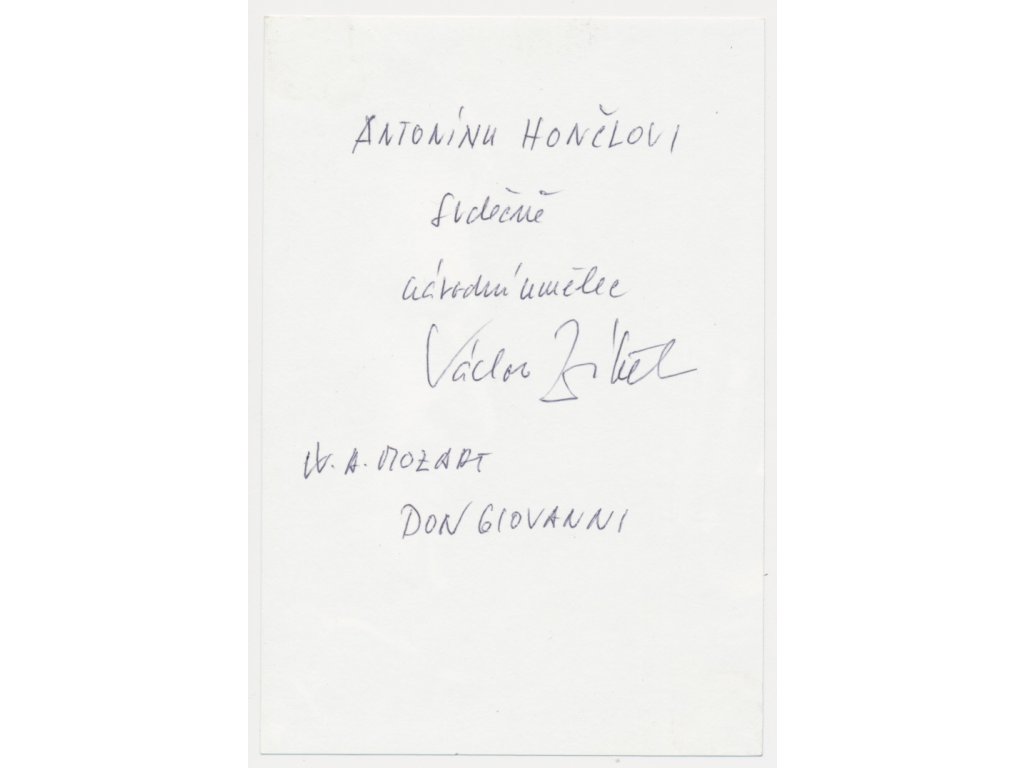 ANTONÍNU HONČLOVI
Srdečně
národní umělec
Václav Zítek
W. A. MOZART
DON GIOVANNI